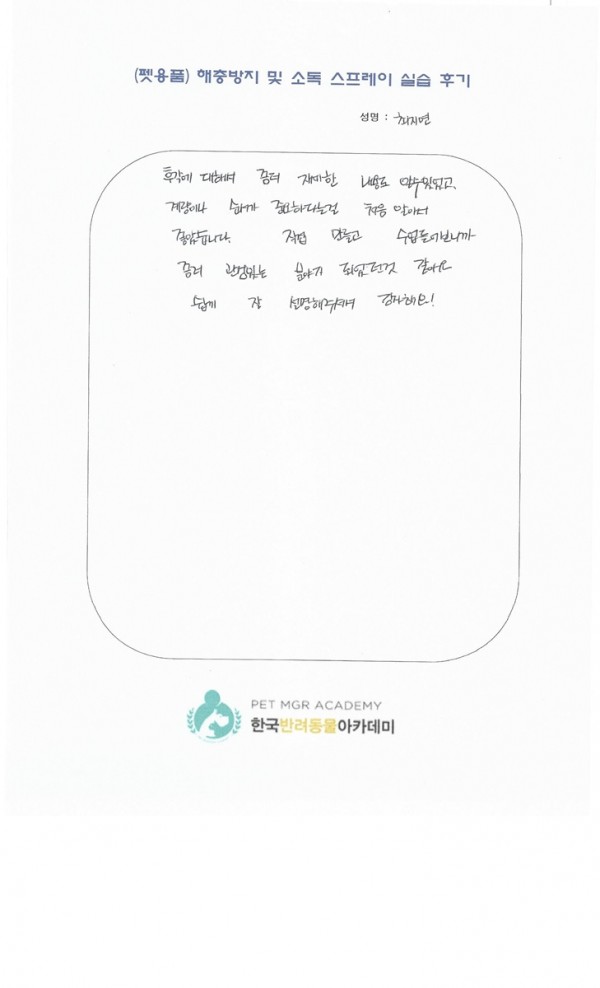 (펫용품) 해충방지 및 소독 스프레이 실습 후기
성명 : 최지연
후각에 대해서 좀더 자세한 내용도 알수있었고,
계량이나 순서가 중요하다는걸 처음 알아서
좋았습니다. 직접 만들고 수업들어보니까
좀더 관심있는 분야가 되었던것 같아요
쉽게 잘 설명해주셔서 감사해요!
PET MGR ACADEMY
한국반려동물아카데미